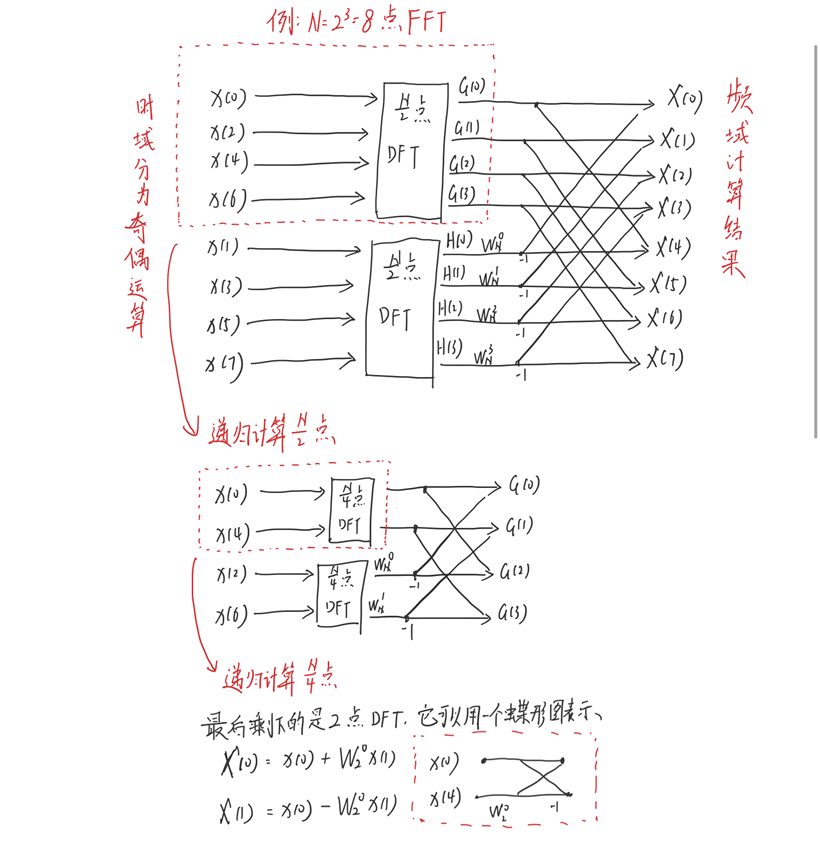 例: N=2³=8点FFT
时域分为奇偶运算
频域计算结果
x(0)
x(2)
x(4)
x(6)
N/2点
DFT
G(0)
G(1)
G(2)
G(3)
X(0)
X(1)
X(2)
X(3)
X(4)
X(5)
X(6)
X(7)
x(1)
x(3)
x(5)
x(7)
N/2点
DFT
H(0) W_N^0
-1
H(1) W_N^1
-1
H(2) W_N^2
-1
H(3) W_N^3
-1
递归计算N/2点
x(0)
x(4)
N/4点
DFT
G(0)
G(1)
G(2)
G(3)
x(2)
x(6)
N/4点
DFT
W_N^0
-1
W_N^1
-1
递归计算N/4点
最后剩下的是2点DFT,它可以用一个蝶形图表示、
X(0) = x(0) + W_2^0 x(1)
X(1) = x(0) - W_2^0 x(1)
x(0)
x(4)
W_2^0
-1